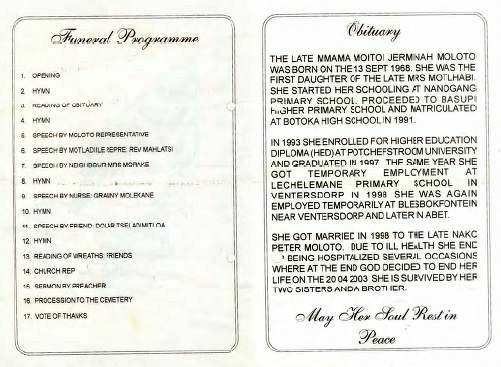 Funeral Programme
1. OPENING
2. HYMN
3. READING OF OBITUARY
4. HYMN
5. SPEECH BY MOLOTO REPRESENTATIVE
6. SPEECH BY MOTLADILE SEPRE: REV MAHLATSI
7. SPEECH BY NEIGHBOUR MRS
8. HYMN
9. SPEECH BY NURSE: GRAINY MOLEKANE
10. HYMN
11. SPEECH BY FRIEND:
12. HYMN
13. READING OF WREATHS: FRIENDS
14. CHURCH REP
15. SERMON BY PREACHER
16. PROCESSION TO THE CEMETERY
17. VOTE OF THANKS
Obituary
THE LATE MMAMA MOITOI JERMINAH MOLOTO
WAS BORN ON THE 13 SEPT 1968. SHE WAS THE
FIRST DAUGHTER OF THE LATE MRS MOTLHABI.
SHE STARTED HER SCHOOLING AT NANOGANG
PRIMARY SCHOOL. PROCEEDED TO BASUPI
HIGHER PRIMARY SCHOOL AND MATRICULATED
AT BOTOKA HIGH SCHOOL IN 1991.
IN 1993 SHE ENROLLED FOR HIGHER EDUCATION
DIPLOMA (HED) AT POTCHEFSTROOM UNIVERSITY
AND GRADUATED IN 1997. THE SAME YEAR SHE
GOT TEMPORARY EMPLOYMENT AT
LECHELEMANE PRIMARY SCHOOL IN
VENTERSDORP IN 1998 SHE WAS AGAIN
EMPLOYED TEMPORARILY AT BLESBOKFONTEIN
NEAR VENTERSDORP AND LATER IN ABET.
SHE GOT MARRIED IN 1998 TO THE LATE NAKO
PETER MOLOTO. DUE TO ILL HEALTH SHE END
BEING HOSPITALIZED SEVERAL OCCASIONS
WHERE AT THE END GOD DECIDED TO END HER
LIFE ON THE 20 04 2003 SHE IS SURVIVED BY HER
TWO SISTERS AND A BROTHER.
May Her Soul Rest in
Peace